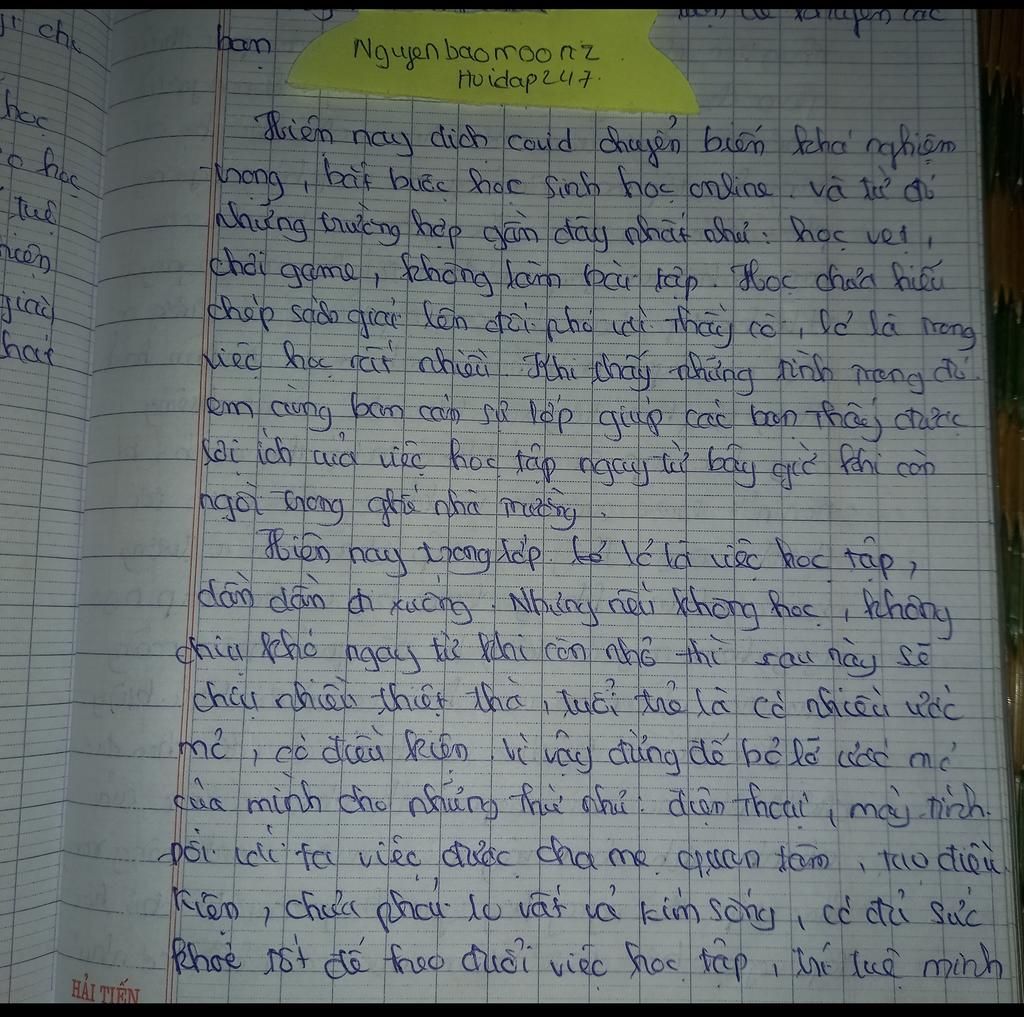 bạn
Nguyenbaomoonz
Hoidap247.
Hiện nay dịch covid chuyển biến khá nghiêm
trọng, bắt buộc học sinh học online. và từ đó
những trường hợp gần đây nhất như: học vẹt,
chơi game, không làm bài tập. Học chưa hiểu
chép sách giải lên đối phó với thầy cô, lơ là trong
việc học rất nhiều. Khi thấy những tình trạng đó
em cùng ban cán sự lớp giúp các bạn thấy được
lợi ích của việc học tập ngay từ bây giờ khi còn
ngồi trong ghế nhà trường.
Hiện nay trong lớp lơ là việc học tập,
dần dần đi xuống. Nhưng nếu không học, không
chịu khó ngay từ khi còn nhỏ thì sau này sẽ
chịu nhiều thiệt thòi, tuổi trẻ là có nhiều ước
mơ, có điều kiện vì vậy đừng để bỏ lỡ ước mơ
của mình cho những thứ như: điện thoại, máy tính.
Đối với ta việc được cha mẹ quan tâm, tạo điều
kiện, chưa phải lo vất vả kiếm sống, có đủ sức
khoẻ tốt để theo đuổi việc học tập, trí tuệ minh
ji ch
học
học
tuệ
giải
hát
HẢI TIẾN